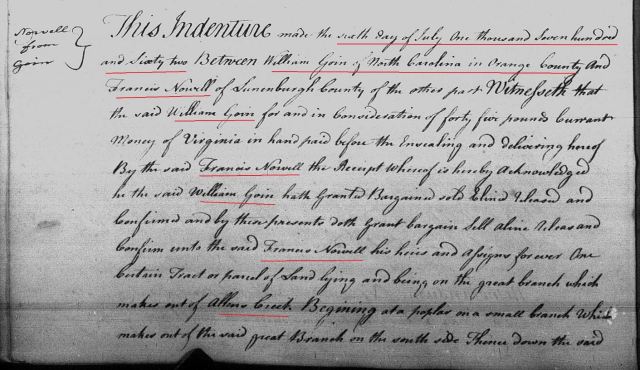 Norvell
from
Goin
This Indenture made the sixth day of July One thousand Seven hundred
and Sixty two Between William Goin of North Carolina in Orange County And
Francis Nowell of Lunenburgh County of the other part Witnesseth that
the said William Goin for and in Consideration of forty five pounds Currant
Money of Virginia in hand paid before the Ensealing and delivering hereof
By the said Francis Nowell the Receipt whereof is hereby Acknowledged
he the said William Goin hath Granted Bargained sold Eliend Released and
Confirmed and by these presents doth Grant bargain Sell aline Releas and
Confirm unto the said Francis Nowell his heirs and Assigns forever One
Certain Tract or parcel of Land lying and being on the great branch which
makes out of Allens Creek Begining at a poplar on a small branch Which
makes out of the said great Branch on the south side Thence down the said